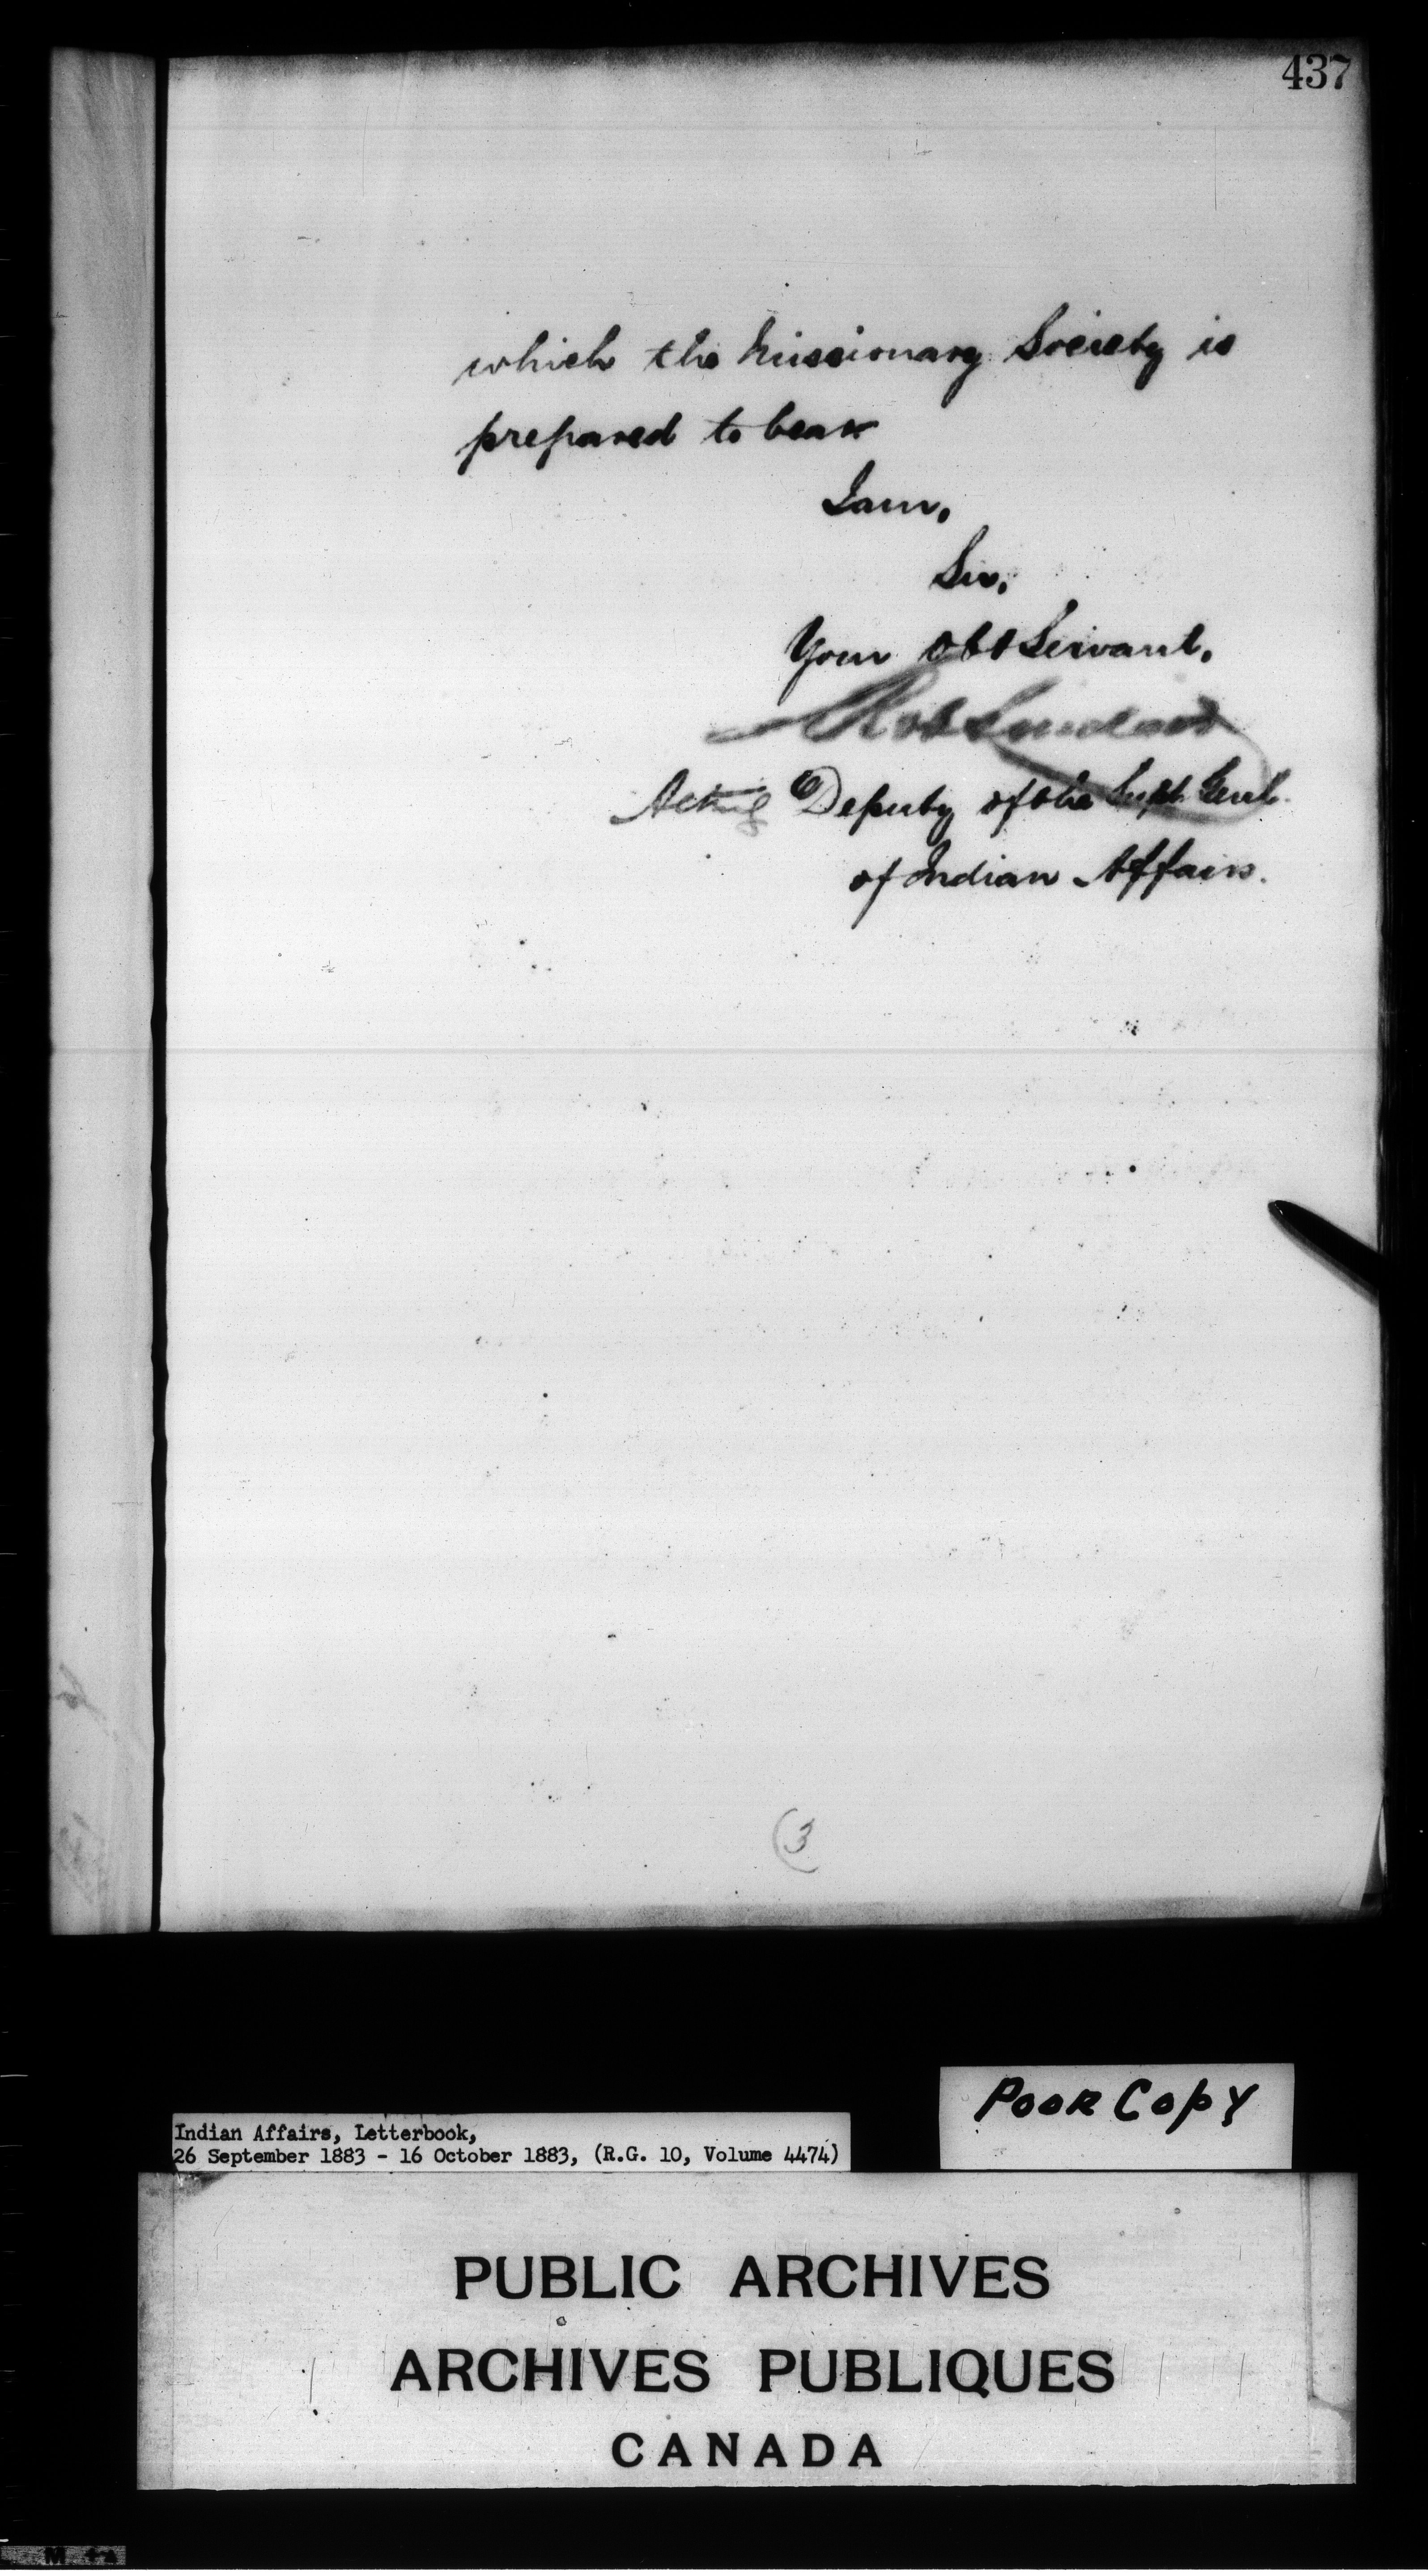 437
which the Missionary Society is
prepared to bear
I am,
Sir,
Your Obt Servant,
Rob Sinclair
Acting Deputy of the Supt. Genl.
of Indian Affairs.
3
Poor Copy
Indian Affairs, Letterbook,
26 September 1883 - 16 October 1883, (R.G. 10, Volume 4474)
PUBLIC ARCHIVES
ARCHIVES PUBLIQUES
CANADA